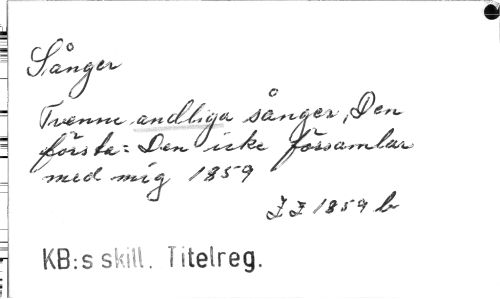 Sånger
Tvenne andliga sånger, Den
första: Den icke församlar
med mig 1859
1859 b
KB:s skill. Titelreg.